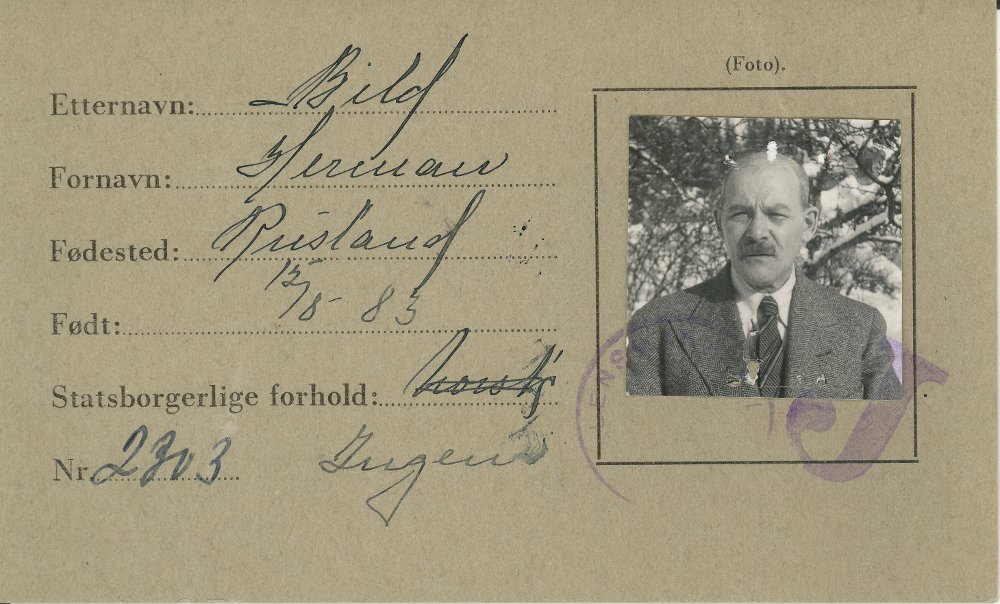 (Foto).
Etternavn: Bild
Fornavn: Herman
Fødested: Rusland
Født: 15/8-83
Statsborgerlige forhold: norsk
Nr. 2703 Ingen
J